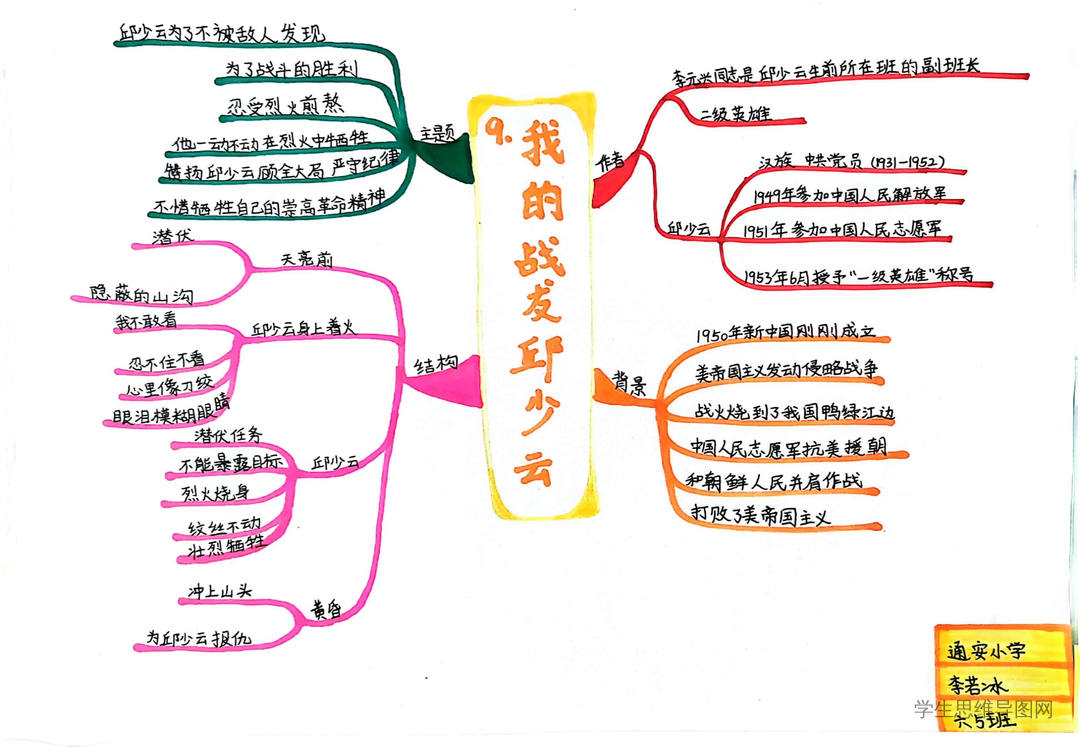 9.
我的战友邱少云
主题
邱少云为了不被敌人发现
为了战斗的胜利
忍受烈火煎熬
他一动不动在烈火中牺牲
赞扬邱少云顾全大局 严守纪律
不惜牺牲自己的崇高革命精神
作者
李元兴同志是邱少云生前所在班的副班长
二级英雄
邱少云
汉族 中共党员 (1931-1952)
1949年参加中国人民解放军
1951年参加中国人民志愿军
1953年6月授予“一级英雄”称号
结构
天亮前
潜伏
隐蔽的山沟
邱少云身上着火
我不敢看
忍不住不看
心里像刀绞
眼泪模糊眼睛
邱少云
潜伏任务
不能暴露目标
烈火烧身
纹丝不动
壮烈牺牲
黄昏
冲上山头
为邱少云报仇
背景
1950年新中国刚刚成立
美帝国主义发动侵略战争
战火烧到了我国鸭绿江边
中国人民志愿军抗美援朝
和朝鲜人民并肩作战
打败了美帝国主义
通安小学
李若冰
六5班
学生思维导图网